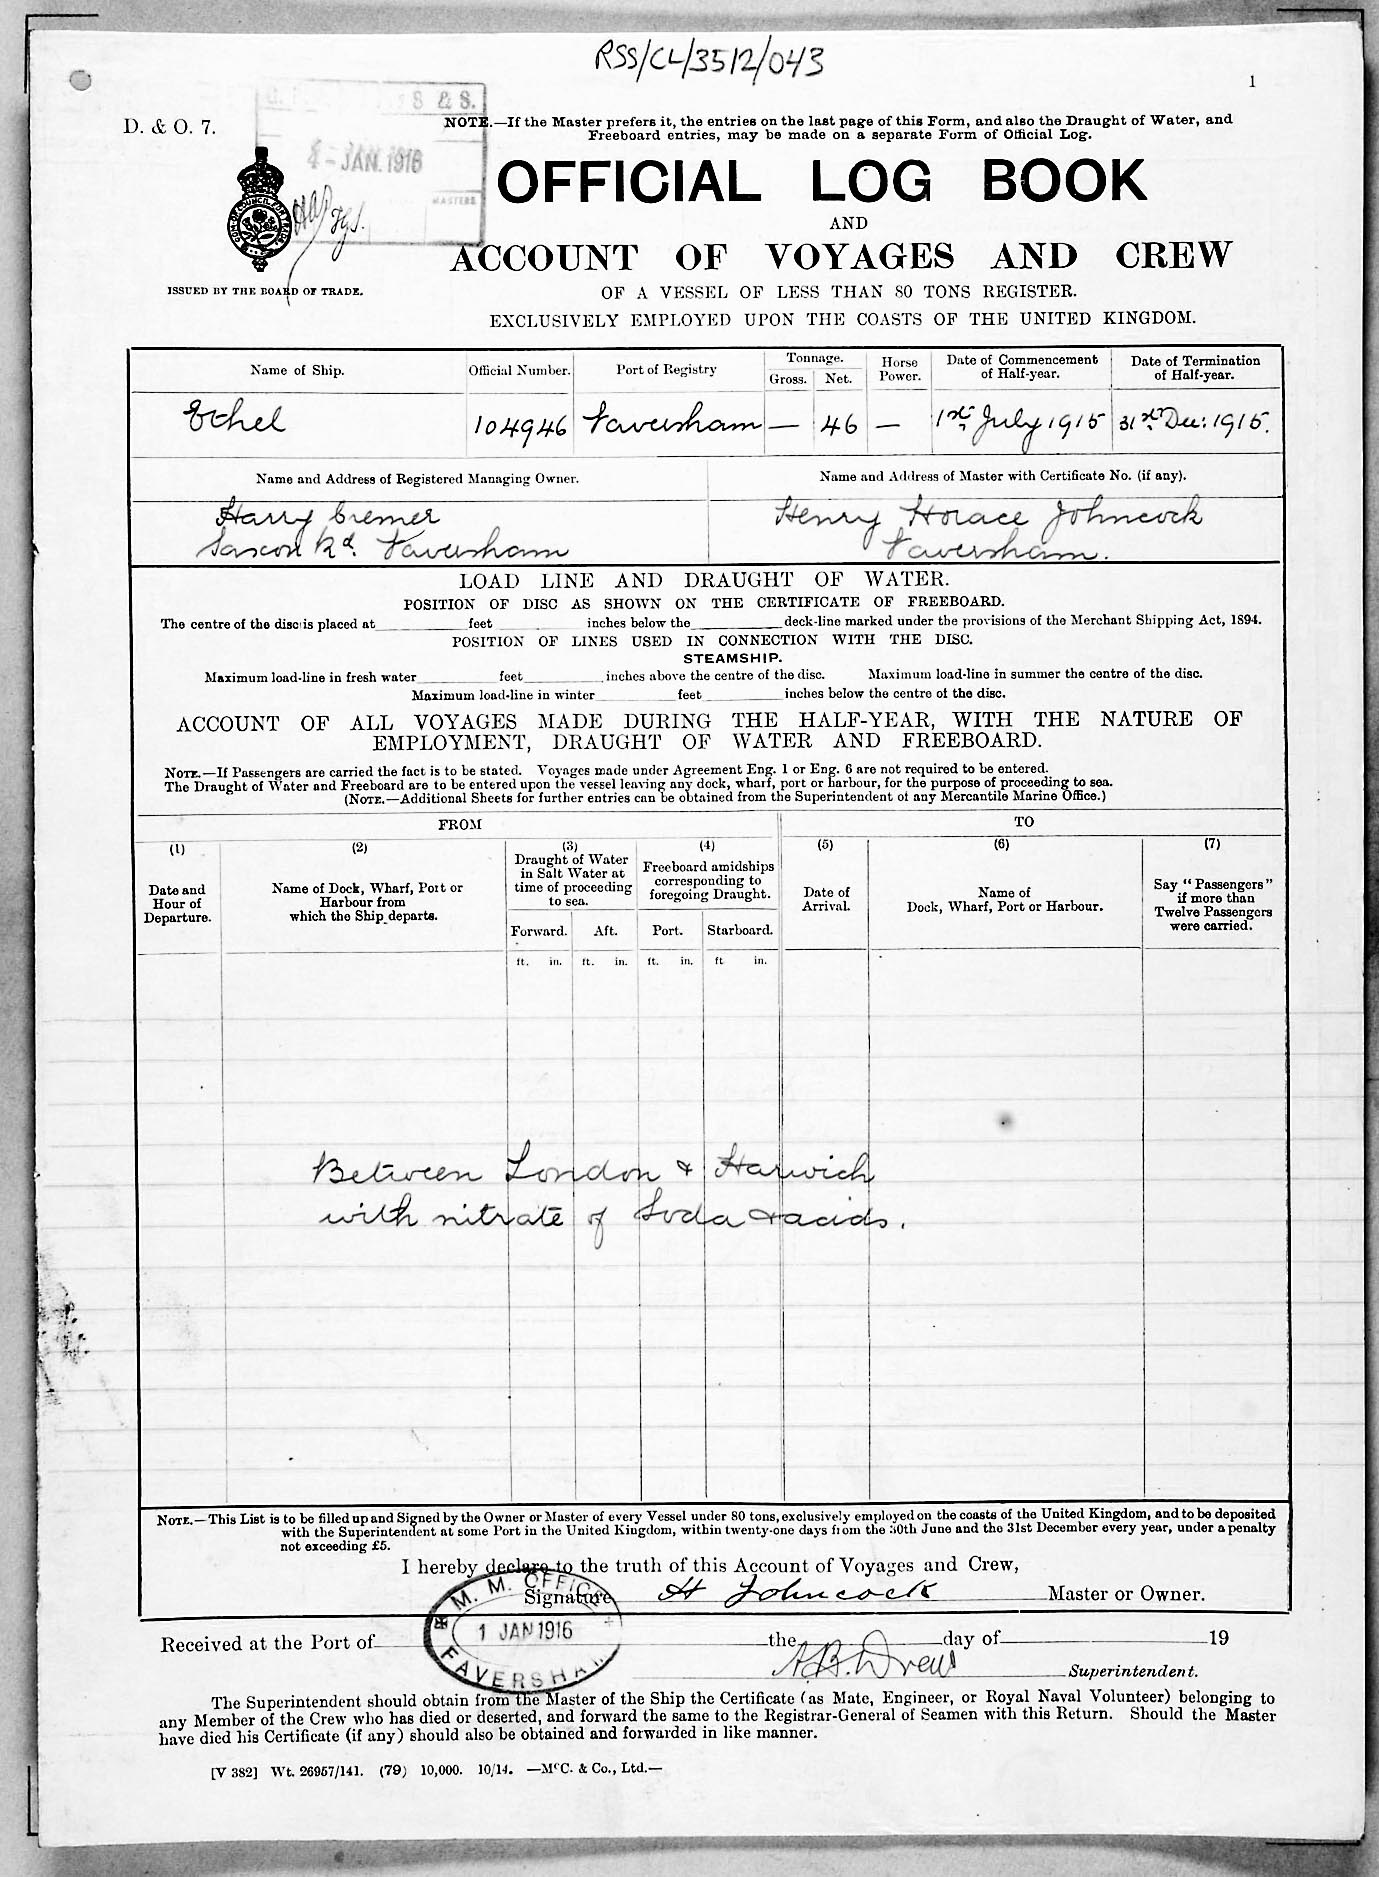 RSS/CL/3512/043
1
D. & O. 7.
S & S.
4 - JAN. 1916
MASTERS
NOTE.—If the Master prefers it, the entries on the last page of this Form, and also the Draught of Water, and
Freeboard entries, may be made on a separate Form of Official Log.
OFFICIAL LOG BOOK
AND
ACCOUNT OF VOYAGES AND CREW
ISSUED BY THE BOARD OF TRADE.
OF A VESSEL OF LESS THAN 80 TONS REGISTER.
EXCLUSIVELY EMPLOYED UPON THE COASTS OF THE UNITED KINGDOM.
Name of Ship. Official Number. Port of Registry Tonnage. Gross. Net. Horse Power. Date of Commencement of Half-year. Date of Termination of Half-year.
Ethel 104946 Faversham — 46 — 1st July 1915 31st Dec: 1915.
Name and Address of Registered Managing Owner. Name and Address of Master with Certificate No. (if any).
Harry Cremer Henry Horace Johncock
Saxon Rd. Faversham Faversham.
LOAD LINE AND DRAUGHT OF WATER.
POSITION OF DISC AS SHOWN ON THE CERTIFICATE OF FREEBOARD.
The centre of the disc is placed at feet inches below the deck-line marked under the provisions of the Merchant Shipping Act, 1894.
POSITION OF LINES USED IN CONNECTION WITH THE DISC.
STEAMSHIP.
Maximum load-line in fresh water feet inches above the centre of the disc. Maximum load-line in summer the centre of the disc.
Maximum load-line in winter feet inches below the centre of the disc.
ACCOUNT OF ALL VOYAGES MADE DURING THE HALF-YEAR, WITH THE NATURE OF
EMPLOYMENT, DRAUGHT OF WATER AND FREEBOARD.
NOTE.—If Passengers are carried the fact is to be stated. Voyages made under Agreement Eng. 1 or Eng. 6 are not required to be entered.
The Draught of Water and Freeboard are to be entered upon the vessel leaving any dock, wharf, port or harbour, for the purpose of proceeding to sea.
(NOTE.—Additional Sheets for further entries can be obtained from the Superintendent of any Mercantile Marine Office.)
FROM TO
(1) (2) (3) (4) (5) (6) (7)
Date and Hour of Departure.
Name of Dock, Wharf, Port or Harbour from which the Ship departs.
Draught of Water in Salt Water at time of proceeding to sea.
Freeboard amidships corresponding to foregoing Draught.
Date of Arrival.
Name of Dock, Wharf, Port or Harbour.
Say "Passengers" if more than Twelve Passengers were carried.
Forward. Aft. Port. Starboard.
ft. in. ft. in. ft. in. ft in.
Between London & Harwich
with nitrate of Soda & acids.
NOTE.—This List is to be filled up and Signed by the Owner or Master of every Vessel under 80 tons, exclusively employed on the coasts of the United Kingdom, and to be deposited
with the Superintendent at some Port in the United Kingdom, within twenty-one days from the 30th June and the 31st December every year, under a penalty
not exceeding £5.
I hereby declare to the truth of this Account of Voyages and Crew,
Signature H Johncock Master or Owner.
M. M. OFFICE
1 JAN 1916
FAVERSHAM
Received at the Port of the day of 19
A. B. Drew Superintendent.
The Superintendent should obtain from the Master of the Ship the Certificate (as Mate, Engineer, or Royal Naval Volunteer) belonging to
any Member of the Crew who has died or deserted, and forward the same to the Registrar-General of Seamen with this Return. Should the Master
have died his Certificate (if any) should also be obtained and forwarded in like manner.
[V 382] Wt. 26957/141. (79) 10,000. 10/14. —McC. & Co., Ltd.—